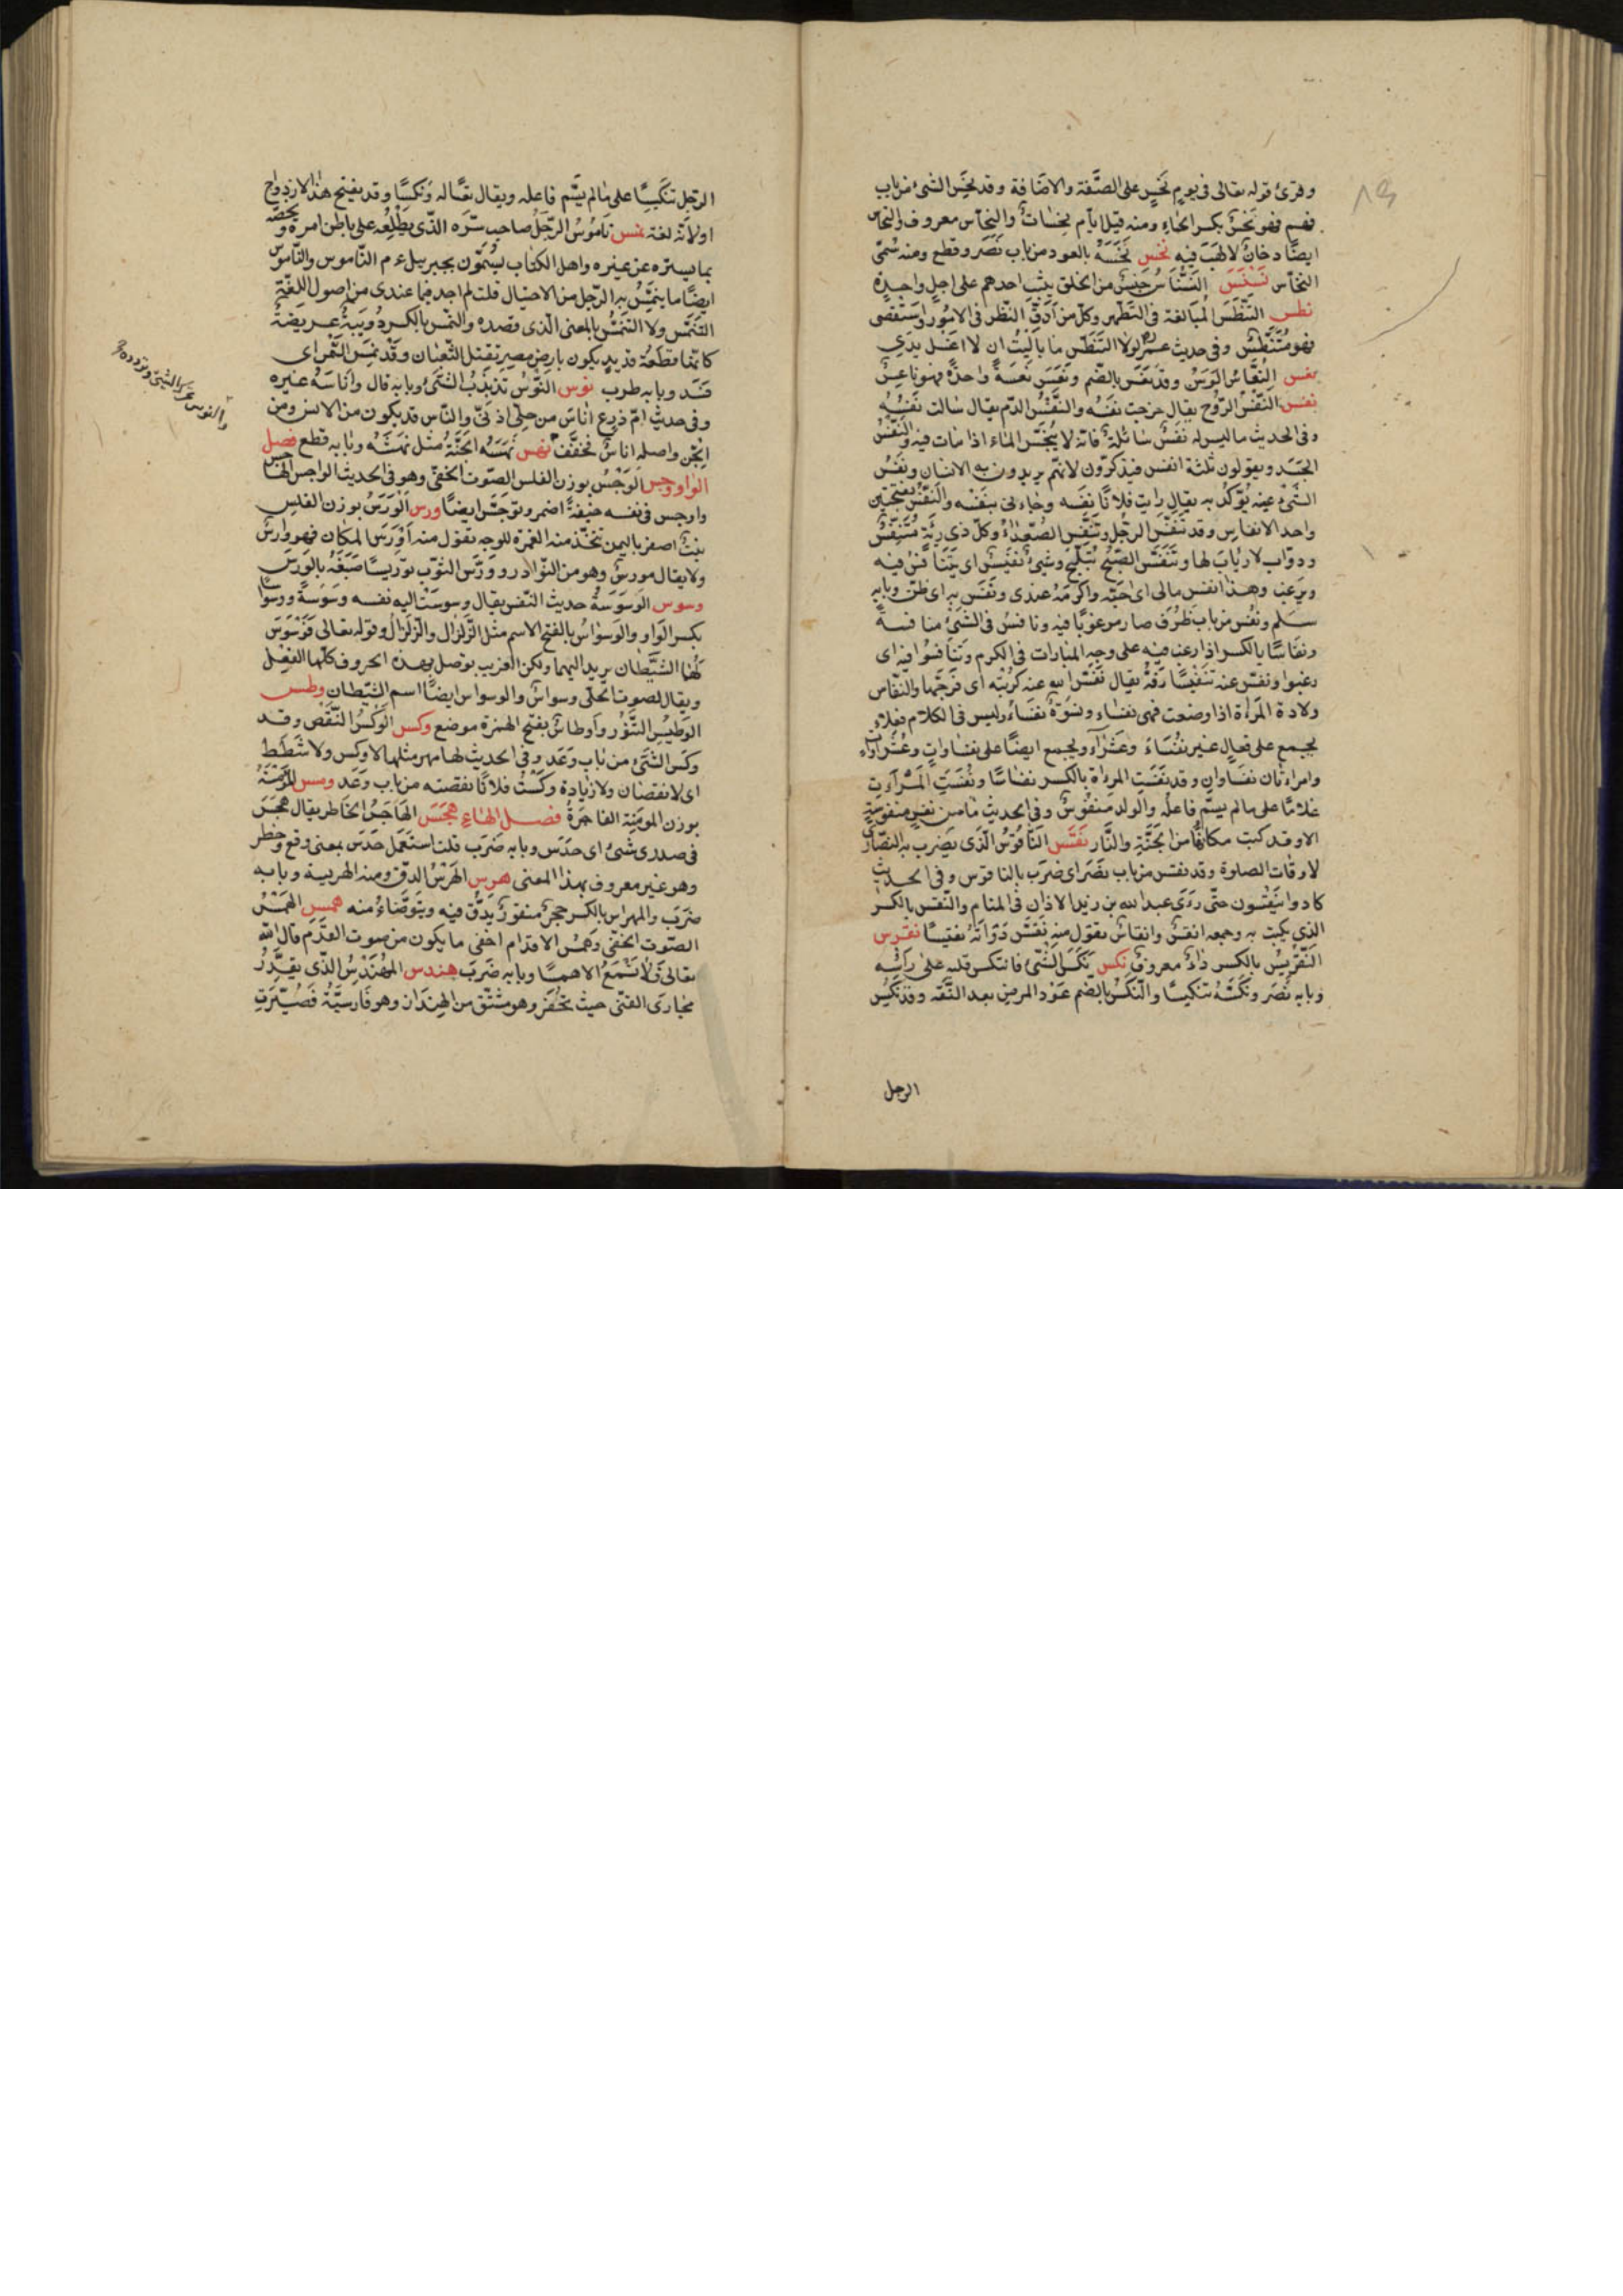 وقرئ قوله تعالى في يوم نحس على الصّفة والاضافة وقد نحس الشئ من باب
فهم فهو نحس بكسر الحاء ومنه قيل ايّام نحسات والنحاس معروف والنحاس
ايضًا دخان لا لهب فيه نخس نخسه بالعود من باب نصر وقطع ومنه سُمّى
النخّاس نسنس النسناس جنس من الخلق يثب احدهم على رجل واحدة
نطس التنطس المبالغة في التطهر وكل من ادقّ النظر في الامور واستقصى
فهو متنطس وفي حديث عمر لولا التنطس ما باليت ان لا اغسل يدي
نعس النعاس الوسن وقد نعس بالضم ونعس نعسة واحدة فهو ناعس
نفس النفس الروح يقال خرجت نفسه والنفس الدم يقال سالت نفسه
وفي الحديث ما ليس له نفس سائلة فانه لا ينجّس الماء اذا مات فيه والنفس
الجسد ويقولون ثلثة انفس فيذكرون لانهم يريدون به الانسان ونفس
الشئ عينه يؤكد به يقال رايت فلانا نفسه وجاءني بنفسه والنفس بفتحتين
واحد الانفاس وقد تنفس الرجل وتنفس الصعداء وكل ذي رئة متنفس
ودواب الماء لا رئات لها وتنفس الصبح تبلج وشئ نفيس اى يتنافس فيه
ويرغب وهذا انفس مالى اى احبّه واكرمه عندى ونفس به اى ظنّ وبابه
سلم ونفس من باب ظرف صار مرغوبا فيه ونافس في الشئ منافسة
ونفاسا بالكسر اذا رغب فيه على وجه المبارات في الكرم وتنافسوا فيه اى
رغبوا ونفس عنه تنفيسا رفه يقال نفس الله عنه كربته اى فرجها والنفاس
ولادة المرأة اذا وضعت فهى نفساء ونسوة نفساء وليس في الكلام فعلاء
يجمع على فعال غير نفساء وعشراء ويجمع ايضا على نفساوات وعشراوات
وامراءتان نفساوان وقد نفست المرءاة بالكسر نفاسا ونفست المرآءة
غلاما على ما لم يسم فاعله والولد منفوس وفي الحديث ما من نفس منفوسة
الا وقد كتب مكانها من الجنة والنار نقس الناقوس الذى يضرب به النصارى
لاوقات الصلوة وقد نقس من باب نصر اى ضرب بالناقوس وفي الحديث
كادوا ينقسون حتى رءى عبد الله بن زيد الاذان في المنام والنقس بالكسر
الذي يكتب به وجمعه انقس وانقاس تقول منه نقس دواته تنقيسا نقرس
النقريس بالكسر داء معروف نكس نكس الشئ فانتكس قلبه على رأسه
وبابه نصر ونكسه تنكيسا والنكس بالضم عود المرض بعد النقه وقد نكس
الرجل
الرجل تنكيسًا على ما لم يسم فاعله ويقال تعسا له ونكسا وقد يفتح هنا للازدواج
او لانه لغة نمس ناموس الرجل صاحب سره الذى يطلعه على باطن امره ويخصه
بما يستره عن غيره واهل الكتاب يسمون جبريل ع م الناموس والناموس
ايضا ما ينمس به الرجل من الاحتيال قلت لم اجد فيما عندى من اصول اللغة
التنمس ولا التنمس بالمعنى الذى قصده والنمس بالكسر دويبة عريضة
كانها قطعة قديد يكون بارض مصر تقتل الثعبان وقد نمس السمن اى
فسد وبابه طرب نوس النوس تذبذب الشئ وبابه قال واناسه غيره
وفي حديث ام زرع اناس من حلى اذنى والناس قد يكون من الانس ومن
الجن واصله اناس فخفف نهس نهسه الحية مثل نهشه وبابه قطع فصل
الواو وجس الوجس بوزن الفلس الصوت الخفى وهو في الحديث الواجس الهاجس
واوجس في نفسه خيفة اضمر وتوجس ايضا ورس الورس بوزن الفلس
نبت اصفر باليمن تتخذ منه الغمرة للوجه تقول منه اورس المكان فهو وارس
ولا يقال مورس وهو من النوادر وورس الثوب توريسا صبغه بالورس
وسوس الوسوسة حديث النفس يقال وسوست اليه نفسه وسوسة ووسواسا
بكسر الواو والوسواس بالفتح الاسم مثل الزلزال والزلزال وقوله تعالى فوسوس
لهما الشيطان يريد اليهما ولكن العرب توصل بهذه الحروف كلها الفعل
ويقال لصوت الحلى وسواس والوسواس ايضا اسم الشيطان وطس
الوطيس التنور واوطاس بفتح الهمزة موضع وكس الوكس النقص وقد
وكس الشئ من باب وعد وفي الحديث لها مهر مثلها لا وكس ولا شطط
اى لا نقصان ولا زيادة وكست فلانا نقصته من باب وعد ومس المومسة
بوزن المؤمنة الفاجرة فصل الهاء هجس الهاجس الخاطر يقال هجس
في صدرى شئ اى حدس وبابه ضرب قلت استعمل حدس بمعنى وقع وخطر
وهو غير معروف بهذا المعنى هرس الهرس الدق ومنه الهريسة وبابه
ضرب والمهراس بالكسر حجر منقور يدق فيه ويتوضاء منه همس الهمس
الصوت الخفى وهمس الاقدام اخفى ما يكون من صوت القدم قال الله
تعالى فلا تسمع الا همسا وبابه ضرب هندس المهندس الذى يقدر
مجارى القنى حيث تحفر وهو مشتق من الهنداز وهو فارسية فصيرت
والنوس تحرك الشئ وتردده